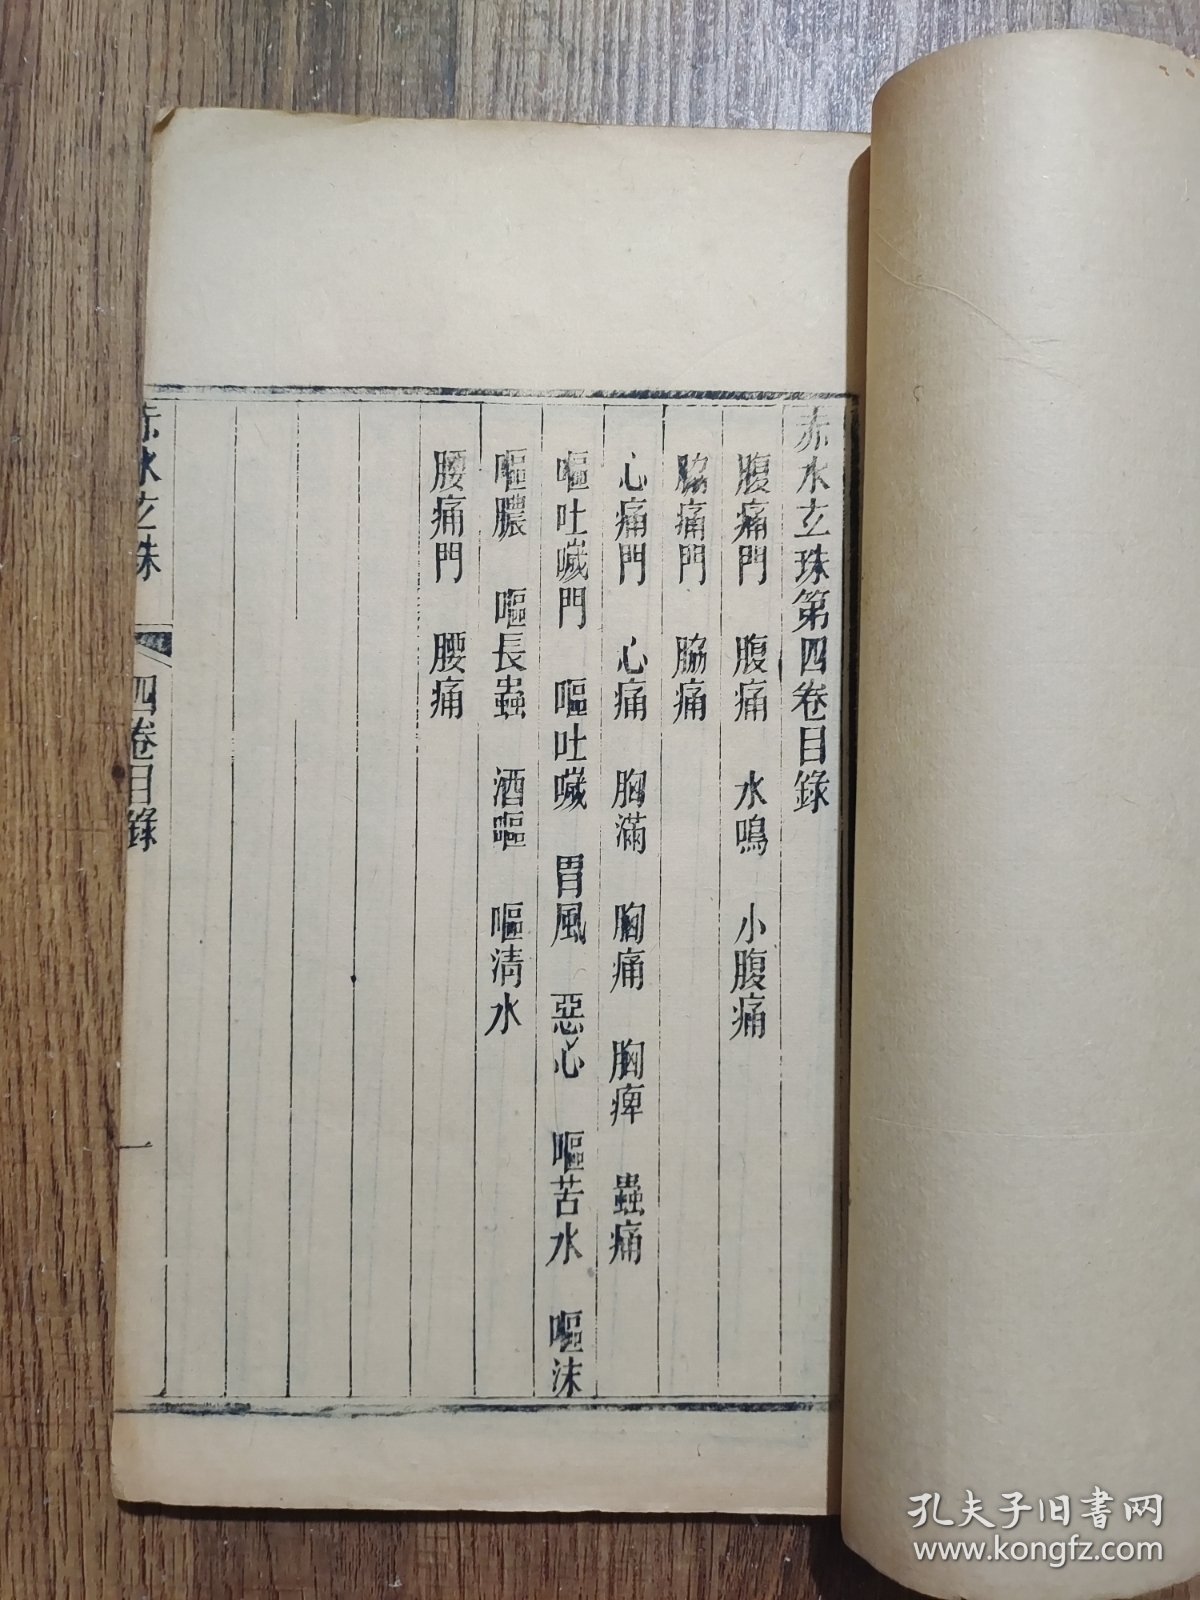 赤水玄珠第四卷目錄
腹痛門 腹痛 水鳴 小腹痛
脇痛門 脇痛
心痛門 心痛 胸滿 胸痛 胸痺 蟲痛
嘔吐噦門 嘔吐噦 胃風 惡心 嘔苦水 嘔沫
嘔膿 嘔長蟲 酒嘔 嘔清水
腰痛門 腰痛
赤水玄珠 四卷目錄 一
孔夫子旧书网
www.kongfz.com